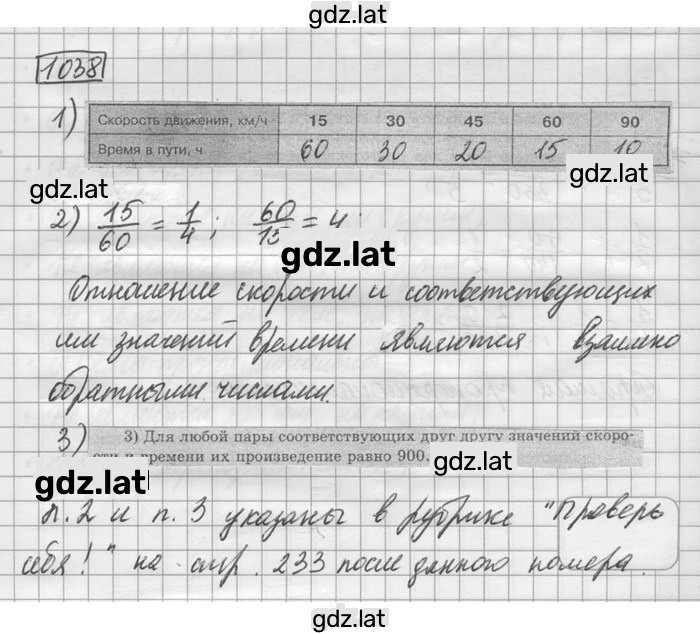 gdz.lat
1038
1) Скорость движения, км/ч 15 30 45 60 90
Время в пути, ч 60 30 20 15 10
gdz.lat
gdz.lat
2) 15/60 = 1/4; 60/15 = 4.
gdz.lat
Отношение скорости и соответствующих
им значений времени являются взаимно
обратными числами.
3) 3) Для любой пары соответствующих друг другу значений скоро-
сти и времени их произведение равно 900.
gdz.lat
gdz.lat
п. 2 и п. 3 указаны в рубрике "Проверь
себя!" на стр. 233 после данного номера.
gdz.lat